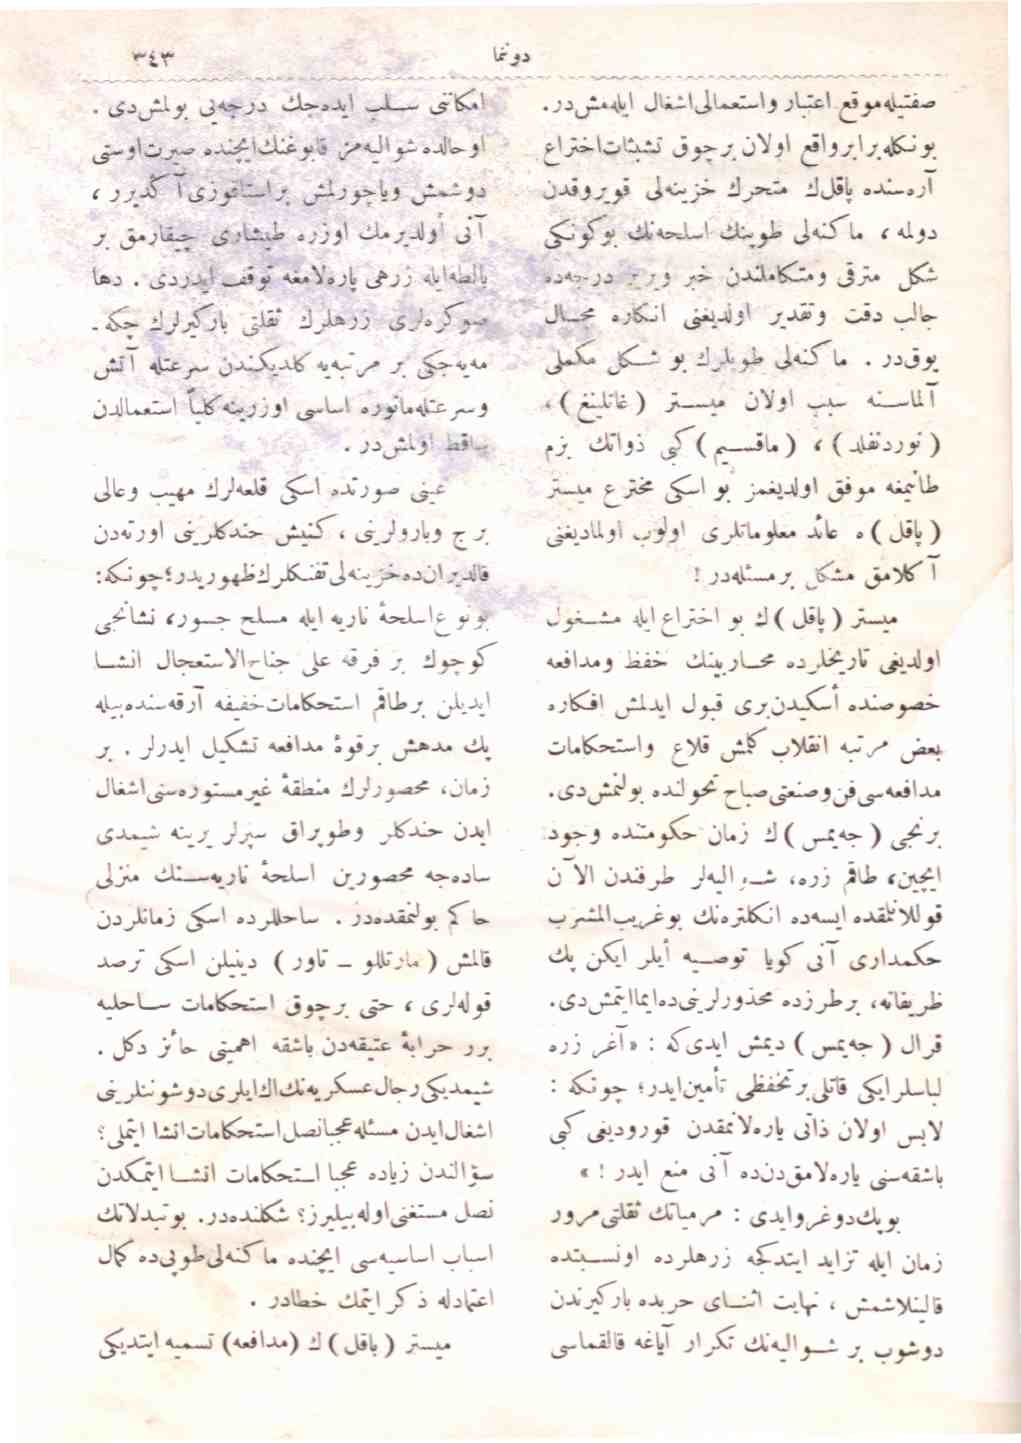 دوننما
٣٤٣
صفتيله موقع اعتبار واستعمالى اشغال ايله مش در.
بونكله برابر واقع اولان برچوق تشبثات اختراع
آره سنده پاقل ك متحرك خزينه لى قويروقدن
دولمه ، ماكنه لى طوپنك اسلحه نك بوكونكى
شكل مترقى ومتكاملندن خبر ويرير درجه ده
جالب دقت وتقدير اولديغنى انكاره مجال
يوق در . ماكنه لى طوپلرك بو شكل مكملى
آلماسنه سبب اولان ميستر (غاتلينغ) ،
(نوردنفلد) ، (ماقسيم) كبى ذواتك بزم
طانيمغه موفق اولديغمز بو اسكى مخترع ميستر
(پاقل) ه عائد معلوماتلرى اولوب اولماديغنى
آكلامق مشكل برمسئله در !
ميستر (پاقل) ك بو اختراع ايله مشغول
اولديغى تاريخلرده محاربينك حفظ ومدافعه
خصوصنده أسكيدن برى قبول ايدلمش افكاره
بعض مرتبه انقلاب كلمش قلاع واستحكامات
مدافعه سى فن وصنعتى صباح تحولنده بولنمش دى.
برنجى (جه يمس) ك زمان حكومتنده وجود
ايچين، طاقم زره، شواليه لر طرفندن الآن
قوللانلمقده ايسه ده انكلتره نك بو غريب المشرب
حكمدارى آنى كويا توصيه أيلر ايكن پك
ظريفانه، برطرزده محذورلرينى ده ايما ايتمش دى.
قرال (جه يمس) ديمش ايدى كه : «آغر زره
لباسلر ايكى قاتلى برتحفظى تأمين ايدر؛ چونكه :
لابس اولان ذاتى ياره لانمقدن قوروديغى كبى
باشقه سنى ياره لامق دن ده آنى منع ايدر ! »
بو پك دوغروايدى : مرمياتك ثقلتى مرور
زمان ايله تزايد ايتدكجه زرهلرده اونسبتده
قالينلاشمش ، نهايت اثناى حربده باركيرندن
دوشوب بر شواليه نك تكرار آياغه قالقماسى
امكاننى سلب ايده جك درجه يى بولمش دى .
اوحالده شواليه مز قابوغنك ايچنده صيرت اوستى
دوشمش وياچورلمش براستاقوزى آكديرر ،
آنى أولديرمك اوزره طيشارى چيقارمق بر
بالطه ايله زرهى پاره لامغه توقف ايدردى . دها
صوكره لرى زرهلرك ثقلتى باركيرلرك چكه ـ
مه يه جكى بر مرتبه يه كلديكندن سرعتله آتش
وسرعتله مانوره اساسى اوزرينه كلياً استعمالدن
ساقط اولمش در .
عينى صورتده اسكى قلعه لرك مهيب وعالى
برج وبارولرينى ، كنيش خندكلرينى اورته دن
قالديران ده خزينه لى تفنكلرك ظهوريدر؛ چونكه:
بونوع اسلحۀ ناريه ايله مسلح جسور، نشانجى
كوچوك بر فرقه على جناح الاستعجال انشا
ايديلن برطاقم استحكامات خفيفه آرقه سنده بيله
پك مدهش برقوۀ مدافعه تشكيل ايدرلر . بر
زمان، محصورلرك منطقۀ غيرمستوره سنى اشغال
ايدن خندكلر وطوپراق سپرلر يرينه شيمدى
ساده جه محصورين اسلحۀ ناريه سنك منزلى
حاكم بولنمقده در . ساحللرده اسكى زمانلردن
قالمش (مارتللو ـ تاور) دينيلن اسكى ترصد
قوله لرى ، حتى برچوق استحكامات ساحليه
برر خرابۀ عتيقه دن باشقه اهميتى حائز دكل .
شيمديكى رجال عسكريه نك اك ايلرى دوشوننلرينى
اشغال ايدن مسئله عجبا نصل استحكامات انشا ايتملى؟
سؤالندن زياده عجبا استحكامات انشا ايتمكدن
نصل مستغنى اوله بيليرز؟ شكلنده در. بو تبدلاتك
اسباب اساسيه سى ايچنده ماكنه لى طوپى ده كمال
اعتمادله ذكر ايتمك خطادر .
ميستر (باقل) ك (مدافعه) تسميه ايتديكى